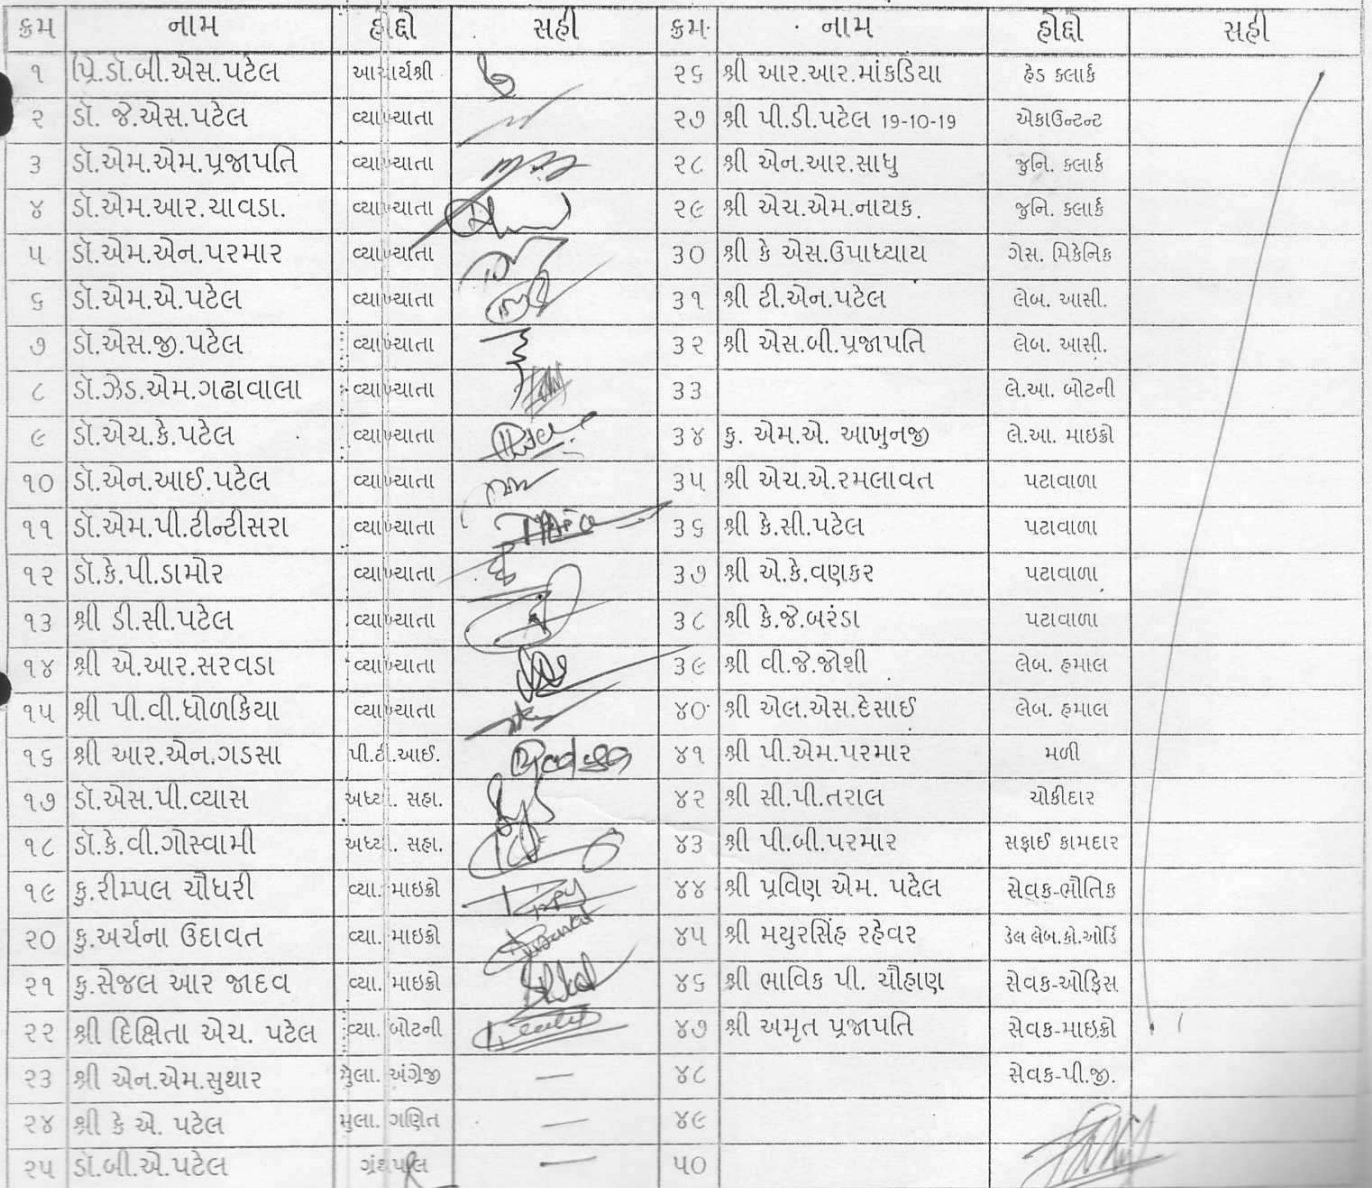 ક્રમ નામ હોદ્દો સહી ક્રમ નામ હોદ્દો સહી
૧ પ્રિ.ડૉ.બી.એસ.પટેલ આચાર્યશ્રી ૨૬ શ્રી આર.આર.માંકડિયા હેડ કલાર્ક
૨ ડૉ. જે.એસ.પટેલ વ્યાખ્યાતા ૨૭ શ્રી પી.ડી.પટેલ 19-10-19 એકાઉન્ટન્ટ
૩ ડૉ.એમ.એમ.પ્રજાપતિ વ્યાખ્યાતા ૨૮ શ્રી એન.આર.સાધુ જુનિ. કલાર્ક
૪ ડૉ.એમ.આર.ચાવડા. વ્યાખ્યાતા ૨૯ શ્રી એચ.એમ.નાયક. જુનિ. કલાર્ક
૫ ડૉ.એમ.એન.પરમાર વ્યાખ્યાતા ૩૦ શ્રી કે એસ.ઉપાધ્યાય ગેસ. મિકેનિક
૬ ડૉ.એમ.એ.પટેલ વ્યાખ્યાતા ૩૧ શ્રી ટી.એન.પટેલ લેબ. આસી.
૭ ડૉ.એસ.જી.પટેલ વ્યાખ્યાતા ૩૨ શ્રી એસ.બી.પ્રજાપતિ લેબ. આસી.
૮ ડૉ.ઝેડ.એમ.ગઢાવાલા વ્યાખ્યાતા ૩૩ લે.આ. બોટની
૯ ડૉ.એચ.કે.પટેલ વ્યાખ્યાતા ૩૪ કુ. એમ.એ. આખુનજી લે.આ. માઇક્રો
૧૦ ડૉ.એન.આઈ.પટેલ વ્યાખ્યાતા ૩૫ શ્રી એચ.એ.રમલાવત પટાવાળા
૧૧ ડૉ.એમ.પી.ટીન્ટીસરા વ્યાખ્યાતા ૩૬ શ્રી કે.સી.પટેલ પટાવાળા
૧૨ ડૉ.કે.પી.ડામોર વ્યાખ્યાતા ૩૭ શ્રી એ.કે.વણકર પટાવાળા
૧૩ શ્રી ડી.સી.પટેલ વ્યાખ્યાતા ૩૮ શ્રી કે.જે.બરંડા પટાવાળા
૧૪ શ્રી એ.આર.સરવડા વ્યાખ્યાતા ૩૯ શ્રી વી.જે.જોશી લેબ. હમાલ
૧૫ શ્રી પી.વી.ધોળકિયા વ્યાખ્યાતા ૪૦ શ્રી એલ.એસ.દેસાઈ લેબ. હમાલ
૧૬ શ્રી આર.એન.ગડસા પી.ટી.આઈ. ૪૧ શ્રી પી.એમ.પરમાર મળી
૧૭ ડૉ.એસ.પી.વ્યાસ અધ્યા. સહા. ૪૨ શ્રી સી.પી.તરાલ ચોકીદાર
૧૮ ડૉ.કે.વી.ગોસ્વામી અધ્યા. સહા. ૪૩ શ્રી પી.બી.પરમાર સફાઈ કામદાર
૧૯ કુ.રીમ્પલ ચૌધરી વ્યા. માઇક્રો ૪૪ શ્રી પ્રવિણ એમ. પટેલ સેવક-ભૌતિક
૨૦ કુ.અર્ચના ઉદાવત વ્યા. માઇક્રો ૪૫ શ્રી મયુરસિંહ રહેવર ડેલ લેબ.કો.ઓર્ડિ
૨૧ કુ.સેજલ આર જાદવ વ્યા. માઇક્રો ૪૬ શ્રી ભાવિક પી. ચૌહાણ સેવક-ઓફિસ
૨૨ શ્રી દિક્ષિતા એચ. પટેલ વ્યા. બોટની ૪૭ શ્રી અમૃત પ્રજાપતિ સેવક-માઇક્રો
૨૩ શ્રી એન.એમ.સુથાર મુલા. અંગ્રેજી — ૪૮ સેવક-પી.જી.
૨૪ શ્રી કે એ. પટેલ મુલા. ગણિત — ૪૯
૨૫ ડૉ.બી.એ.પટેલ ગ્રંથપાલ — ૫૦